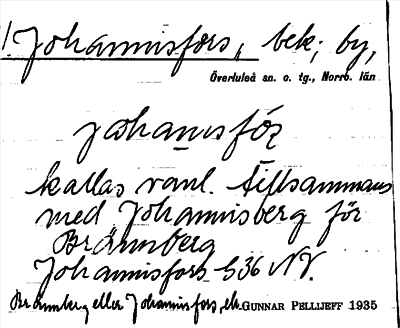 Johannisfors, bek; by,
Överluleå sn. o. tg., Norrb. län
johanısfór
kallas vanl. tillsammans
med Johannisberg för
Brännberg
Johannisfors S36 NV.
Brännberg eller Johannisfors, ek. GUNNAR PELLIJEFF 1935